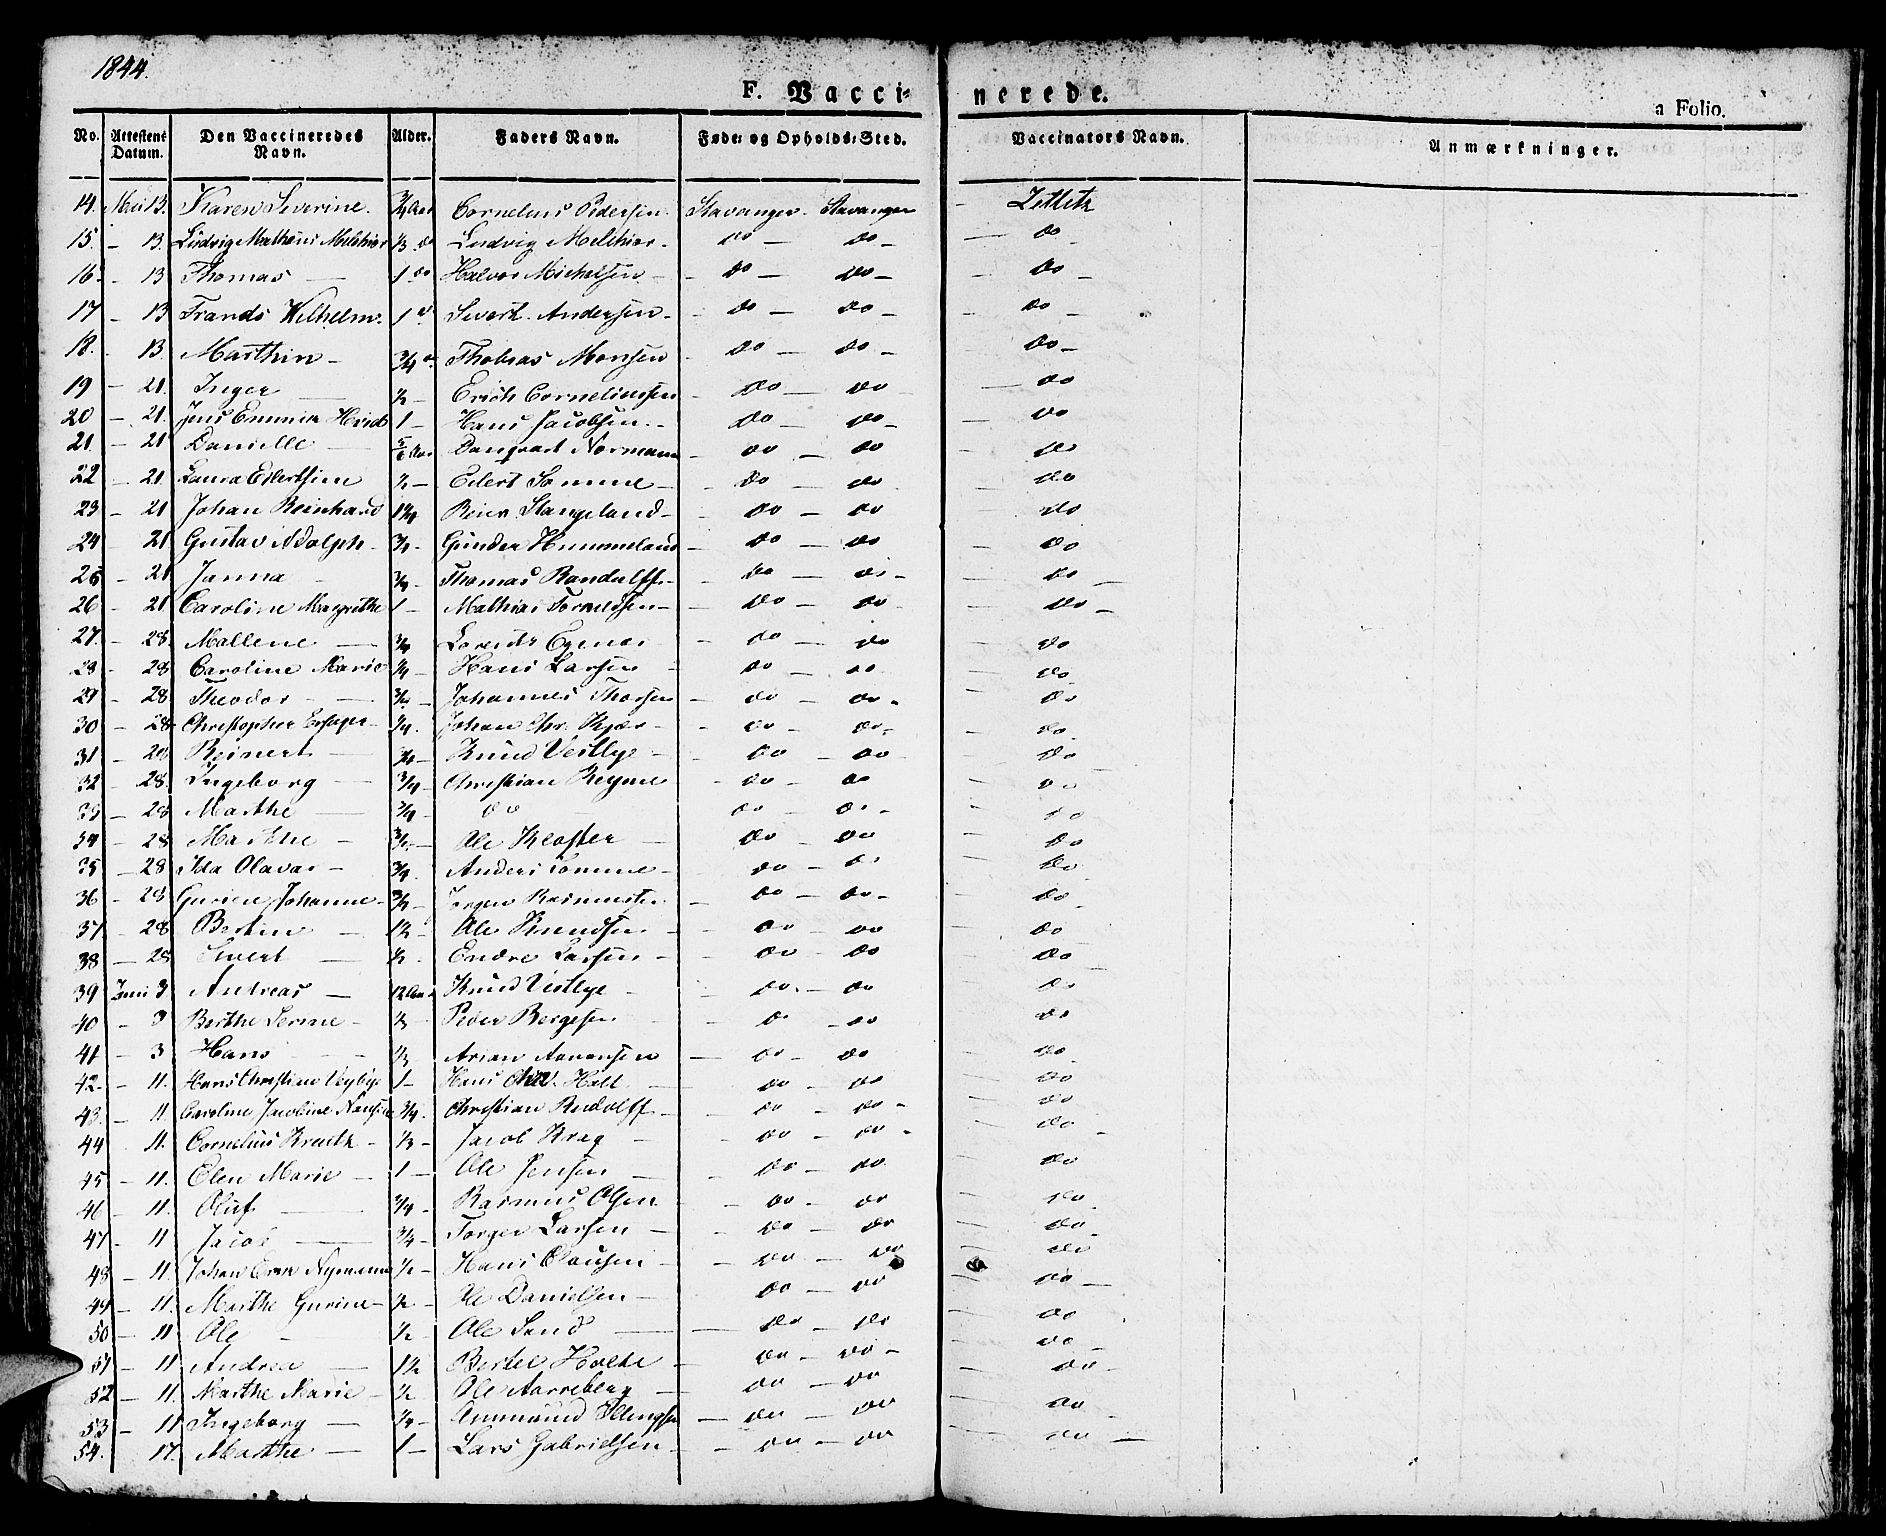 1844.
F. Vaccinerede.
a Folio.
No. Attestens Datum. Den Vaccineredes Navn. Alder. Faders Navn. Føde- og Opholds-Sted. Vaccinators Navn. Anmærkninger.
14. Mai 13. Karen Severine. 3/4 Aar Cornelius Pedersen. Stavanger. Stavanger - Zetlitz
15. - 13. Ludvig Mathæus Melchior 1/3 do Ludvig Melchior - do - do - - do
16. - 13 Thomas - 1 do Halvor Michelsen - do - do - - do -
17 - 13 Frands Wilhelm. 1 do Sivert Andersen - do - do - - do -
18. - 13 Marthin - 3/4 do Thobias Monsen - do - do - - do -
19 - 21. Inger - 1/2 - Erich Corneliussen do - do - do
20 - 21. Jens Emmier 1 - Hans Jacobsen - do - do - - do
21. - 21 Danielle - 5/6 Aar Danqvart Normann - do - do - do
22 - 21. Laura 1/2 - Eilert Sømme - do - do - do
23 - 21 Johan Reinhard 1 1/4 Reier Stangeland - do - do - do
24 - 21 Gustav Adolph - 3/4 - Gunder Hummeland - do - do - do
25 - 21 Janna - 3/4 - Thomas Randulff - do - do - - do -
26 - 21 Caroline Margrethe 1 - Mathias - do - do - do -
27. - 28. Mallene - 3/4 Lorents Egenæs - do - do - do
28 - 28 Caroline Marie 1/4 - Hans Larsen - do - do - do
29 - 28 Theodor - 3/4 - Johannes Thorsen - do - do - - do
30 - 28 Christopher 1/4. Johan Chr. Kjær - do - do - - do
31 - 28 Reinert - Knud Vestlye - do - do - do
32 - 28. Ingeborg - 3/4 - Christian Reyme - do - do - do
33 - 28 Marthe - 3/4 - do do - do - - do
34 - 28 Marthe - Ole Kloster - do - do - do
35 - 28 Ida Olava - 3/4. Anders Sømme - do - do - do
36 - 28 Gurine Johanne - 3/4 - Jørgen - do - do - - do
37. - 28 Bertine - 1 1/2 - Ole Knudsen - do - do - do
38 - 28 Sivert - 1/2 - Endre Larsen - do - do - do
39 Juni 3 Andreas - Knud Vestlye - do - do - do
40 - 3 Berthe Serine - 1/3 - Peder Bergesen - do - do - do
41 - 3 Hans - 1/3 Arian Aanensen - do - do - do
42. - 11. Hans Christian 1 - Hans Chr. Holt - do - do - do
43. - 11. Caroline Jacobine 3/4. Christian Rudolff - do - do - - do
44 - 11. Cornelius 1/3 - Jacob Krag - do - do - - do -
45 - 11. Elen Marie - 1 - Ole Jensen - do - do - do
46 - 11. Oluf - 3/4 - Rasmus Olsen - do - do - do
47 - 11 Jacob - 3/4 - Torger Larsen - do - do - do
48 - 11. Johan Nymann 1/2 - Hans Clausen - do - do - do
49 - 11. Marthe Gurine - 1/2 - Ole Danielsen - do - do - do -
50 - 11 Ole - 1/2 - Ole - do - do - do
51 - 11 Andrea - 1 1/2 Bertel Holte - do - do - - do -
52 - 11. Marthe Marie - 1/2 - Ole Aarreberg - do - do - do
53 - 11 Ingeborg - 1/4 - Ammund - do - do - do
54. - 17. Marthe - 1 - Lars Gabrielsen - do - do - do -